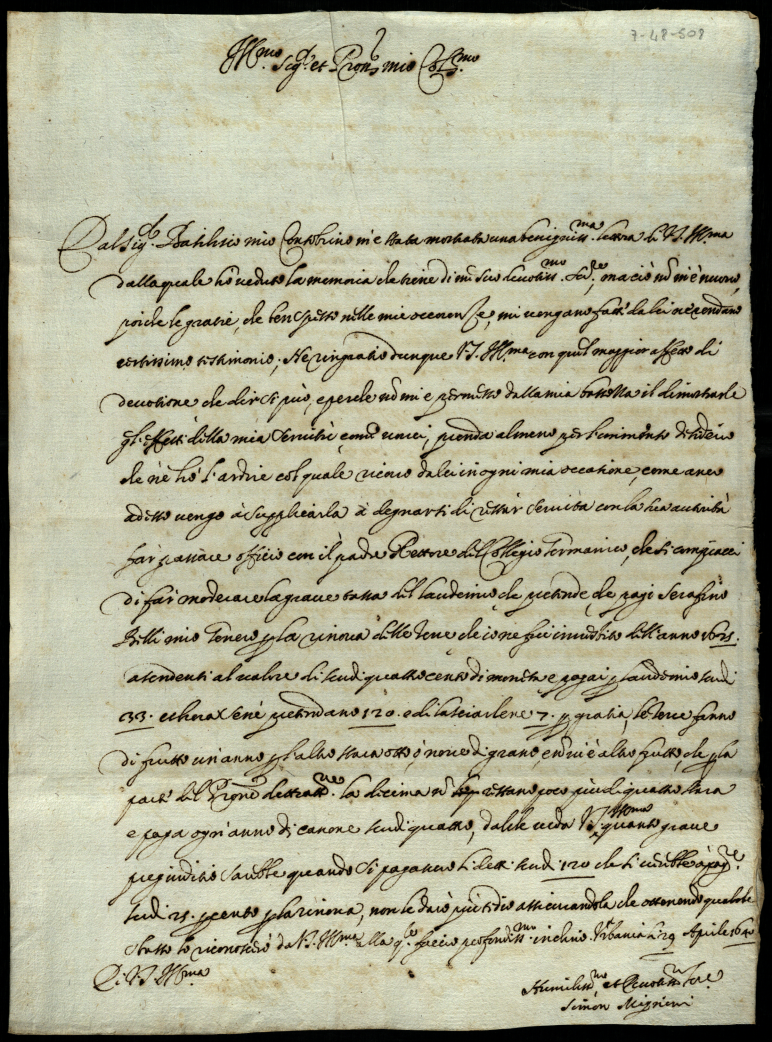 7-48-508
Ill.mo Sig.r et Pron mio Col.mo
Dal Sig.r Batilisio mio è stata mostrata una benigniss.ma lettera di V.S. Ill.ma
dalla quale hò veduto la memoria che tiene di mè suo devotiss.mo ma ciò nō m'è nuovo,
poiche le gratie, che ben spesso nelle mie occorenze, mi vengano fatte da lei nè rendano
certissimo testimonio; Ne ringratio dunque V.S. Ill.ma con quel maggior affetto di
devotione che dir si può, e perche nō mi è permesso dalla mia bassezza il dimostrarle
gl'effetti della mia servitù come vorrei, prenda almeno per
che nè hò l'ardire col quale ricorro da lei in ogni mia occasione, come anco
adesso vengo à supplicarla à degnarsi di restar servita con la sua autorità
far efficace officio con il padre Rettore del Collegio Germanico, che si compiacci
di far moderare la grave tassa del laudemio che pretende, che paghi Serafino
mio Genero p la rinova delle terre che io ne feci dell'anno 1625.
ascendenti al valore di scudi quattro cento di moneta e pagai p laudemio scudi
33. et hora se nè pretendano 120. e di lasciarlene 7. p gratia, le terre fanno
di frutto un'anno p l'altro stara otto, ò nove di grano, e nō vi è altro frutto, che p la
parte del la decima nō poco più di quattro stara
e paga ogn'anno di canone scudi quattro, dal che veda V.S. Ill.ma quanto grave
pregiuditio sarebbe quando si pagassero li detti scudi 120 che si verebbe à pag.re
scudi 25. p cento p la rinova, non le darò più tedio assicurandola che ottenendo qualche
lo riconoscerò da V.S. Ill.ma alla q.le faccio profondiss.mo inchino. Urbania li 29 Aprile 1640
Di V.S. Ill.ma
Humiliss.mo et Devotiss.mo Ser.re
Simon Mignini